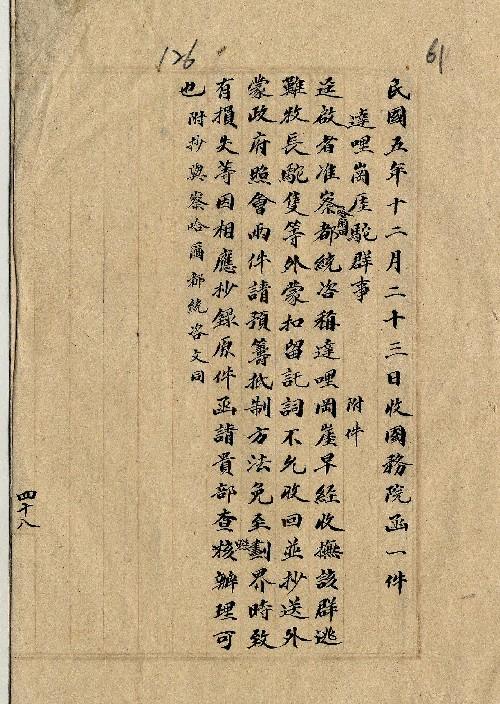 126
61
民國五年十二月二十三日收國務院函一件
達哩崗厓駝群事 附件
逕啟者准察哈爾都統咨稱達哩岡崖早經收撫該群逃
難牧長駝隻等外蒙扣留託詞不允收回並抄送外
蒙政府照會兩件請預籌抵制方法免至劃界時致
有損失等因相應抄錄原件函請貴部查核辦理可
也 附抄與察哈爾都統咨文同
四十八